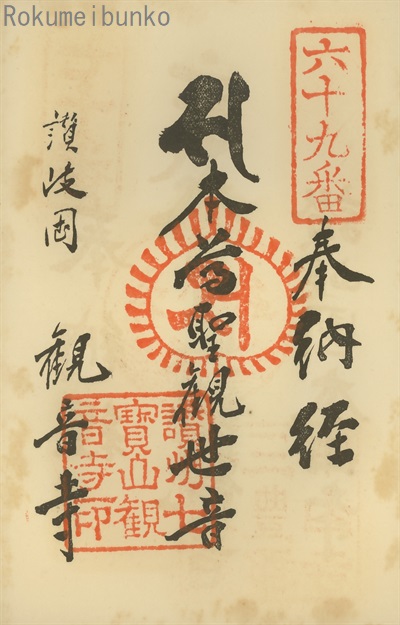 Rokumeibunko
六十九番
奉納経
本尊聖觀世音
讚岐国
觀音寺
讚州七
寶山觀
音寺印